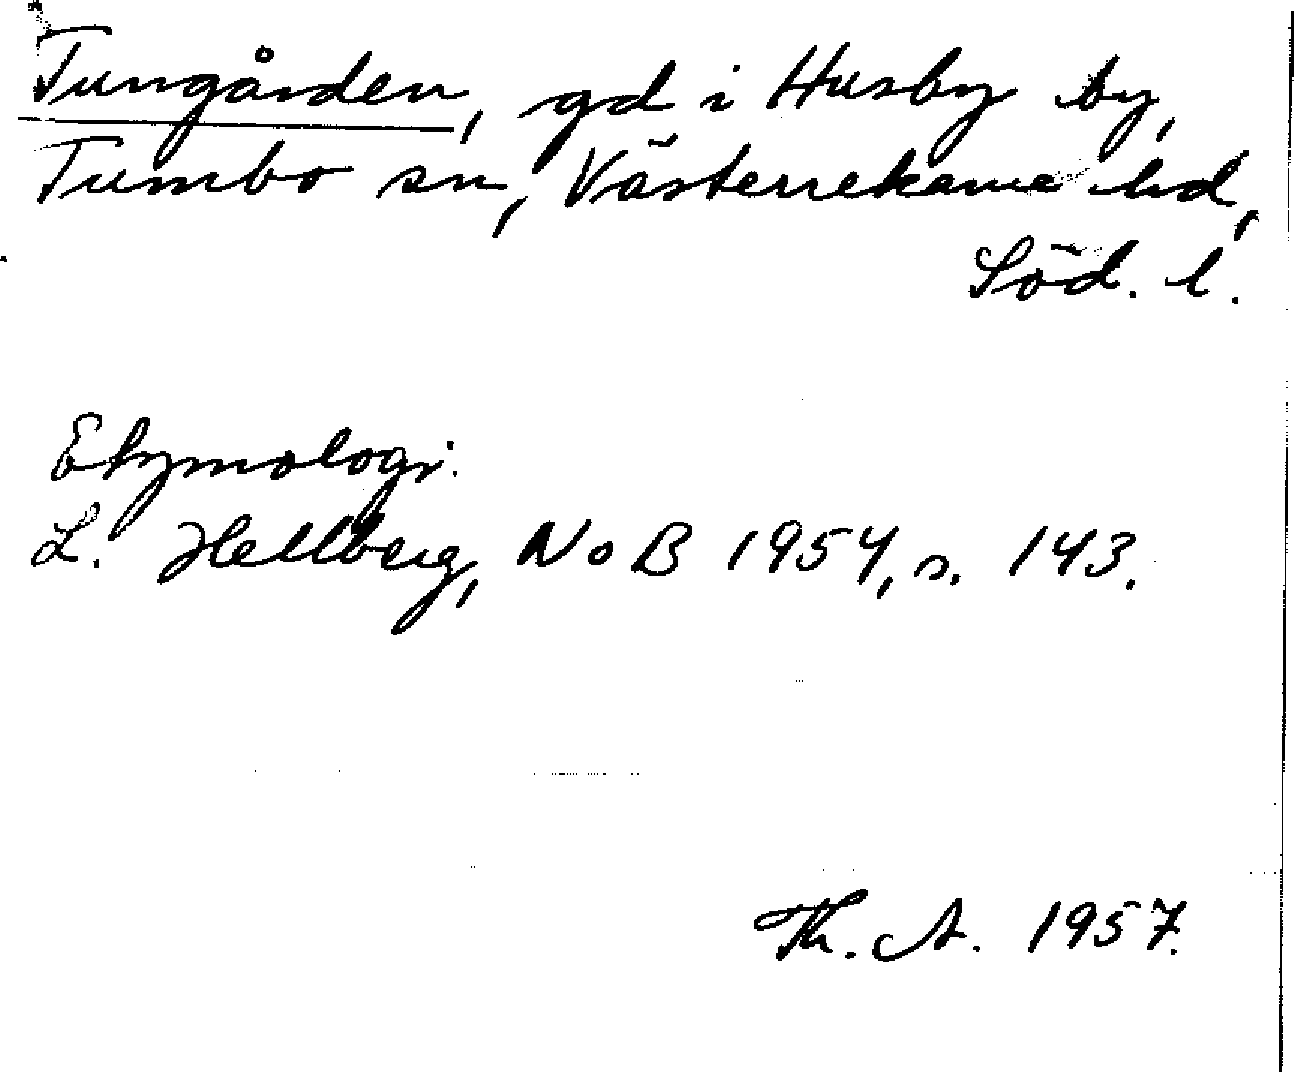 Tungården, gd i Husby by,
Tumbo sn, Västerrekarne hd,
Söd. l.
Etymologi.
L. Hellberg, NoB 1954, s. 143.
Th. A. 1957.